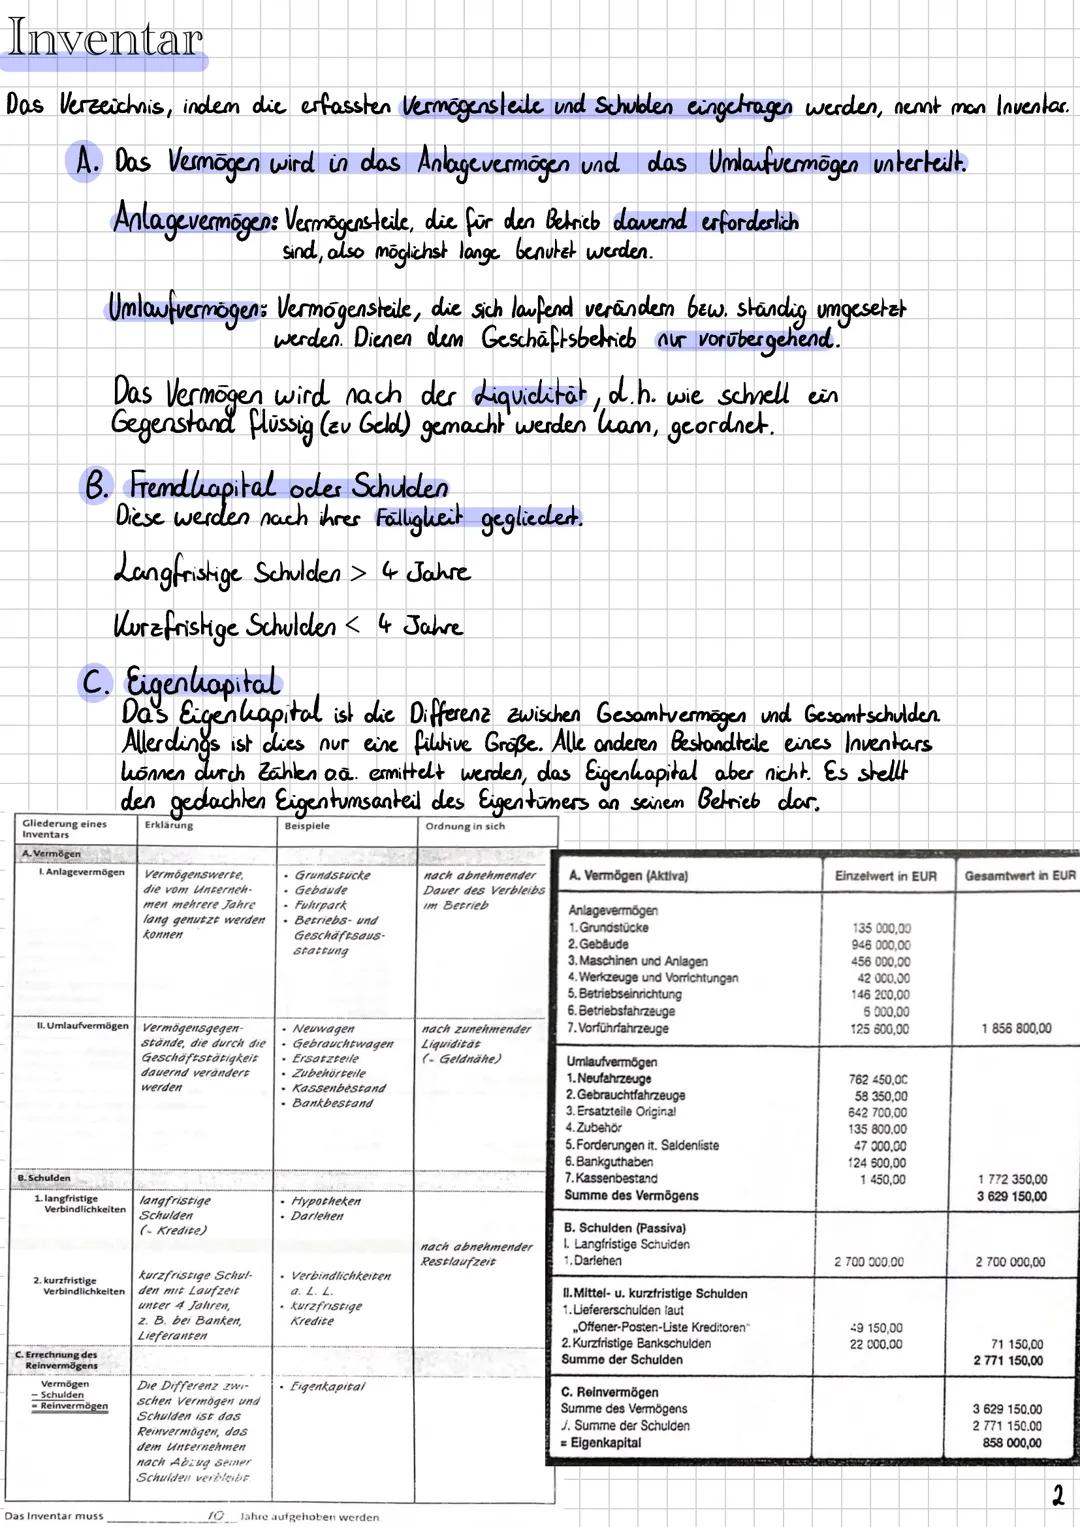 Inventar
Das Verzeichnis, indem die erfassten Vermögensteile und Schulden eingetragen werden, nennt man Inventar.
A. Das Vermögen wird in das Anlagevermögen und das Umlaufvermögen unterteilt.
Anlagevermögen: Vermögensteile, die für den Betrieb dauernd erforderlich
sind, also möglichst lange benutzt werden.
Umlaufvermögen: Vermögensteile, die sich laufend verändern bzw. ständig umgesetzt
werden. Dienen dem Geschäftsbetrieb nur vorübergehend.
Das Vermögen wird nach der Liquidität, d.h. wie schnell ein
Gegenstand flüssig (zu Geld) gemacht werden kann, geordnet.
B. Fremdkapital oder Schulden
Diese werden nach ihrer Fälligkeit gegliedert.
Langfristige Schulden > 4 Jahre
Kurzfristige Schulden < 4 Jahre
C. Eigenkapital
Das Eigenkapital ist die Differenz zwischen Gesamtvermögen und Gesamtschulden
Allerdings ist dies nur eine fiktive Größe. Alle anderen Bestandteile eines Inventars
können durch Zählen o.ä. ermittelt werden, das Eigenkapital aber nicht. Es stellt
den gedachten Eigentumsanteil des Eigentümers an seinem Betrieb dar.
Gliederung eines
Inventars
Erklärung
Beispiele
Ordnung in sich
A. Vermögen
I. Anlagevermögen
Vermögenswerte,
die vom Unterneh-
men mehrere Jahre
lang genutzt werden
können
• Grundstücke
• Gebäude
• Fuhrpark
• Betriebs- und
Geschäftsaus-
stattung
nach abnehmender
Dauer des Verbleibs
im Betrieb
II. Umlaufvermögen
Vermögensgegen-
stände, die durch die
Geschäftstätigkeit
dauernd verändert
werden
• Neuwagen
• Gebrauchtwagen
• Ersatzteile
• Zubehörteile
• Kassenbestand
• Bankbestand
nach zunehmender
Liquidität
(- Geldnähe)
B. Schulden
1. langfristige
Verbindlichkeiten
langfristige
Schulden
(- Kredite)
• Hypotheken
• Darlehen
nach abnehmender
Restlaufzeit
2. kurzfristige
Verbindlichkeiten
kurzfristige Schul-
den mit Laufzeit
unter 4 Jahren,
z. B. bei Banken,
Lieferanten
• Verbindlichkeiten
a. L. L.
• kurzfristige
Kredite
C. Errechnung des
Reinvermögens
Vermögen
– Schulden
= Reinvermögen
Die Differenz zwi-
schen Vermögen und
Schulden ist das
Reinvermögen, das
dem Unternehmen
nach Abzug seiner
Schulden verbleibt.
• Eigenkapital
Das Inventar muss 10 Jahre aufgehoben werden
A. Vermögen (Aktiva) Einzelwert in EUR Gesamtwert in EUR
Anlagevermögen
1. Grundstücke 135 000,00
2. Gebäude 946 000,00
3. Maschinen und Anlagen 456 000,00
4. Werkzeuge und Vorrichtungen 42 000,00
5. Betriebseinrichtung 146 200,00
6. Betriebsfahrzeuge 6 000,00
7. Vorführfahrzeuge 125 600,00 1 856 800,00
Umlaufvermögen
1. Neufahrzeuge 762 450,00
2. Gebrauchtfahrzeuge 58 350,00
3. Ersatzteile Original 642 700,00
4. Zubehör 135 800,00
5. Forderungen lt. Saldenliste 47 000,00
6. Bankguthaben 124 600,00
7. Kassenbestand 1 450,00 1 772 350,00
Summe des Vermögens 3 629 150,00
B. Schulden (Passiva)
I. Langfristige Schulden
1. Darlehen 2 700 000,00 2 700 000,00
II. Mittel- u. kurzfristige Schulden
1. Liefererschulden laut
„Offener-Posten-Liste Kreditoren“ 49 150,00
2. Kurzfristige Bankschulden 22 000,00 71 150,00
Summe der Schulden 2 771 150,00
C. Reinvermögen
Summe des Vermögens 3 629 150.00
./. Summe der Schulden 2 771 150.00
= Eigenkapital 858 000,00
2